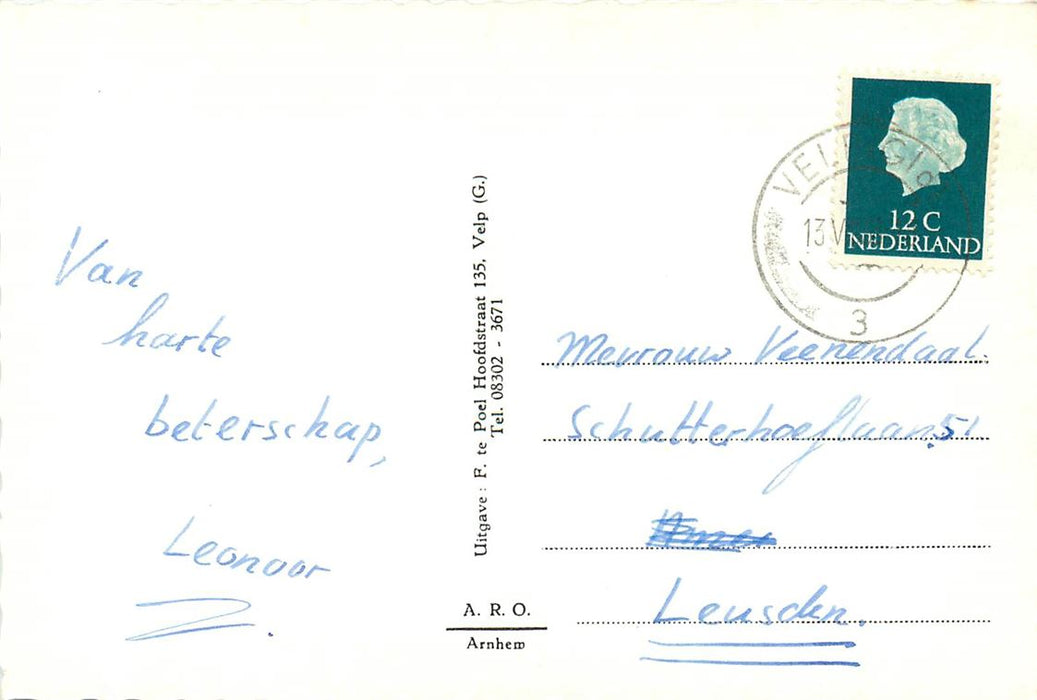 Van
harte
beterschap,
Leonoor
Uitgave : F. te Poel Hoofdstraat 135, Velp (G.)
Tel. 08302 - 3671
A. R. O.
Arnhem
VELP
13 V
3
12 C
NEDERLAND
Mevrouw Veenendaal.
Schutterhoeflaan 51
Leusden.